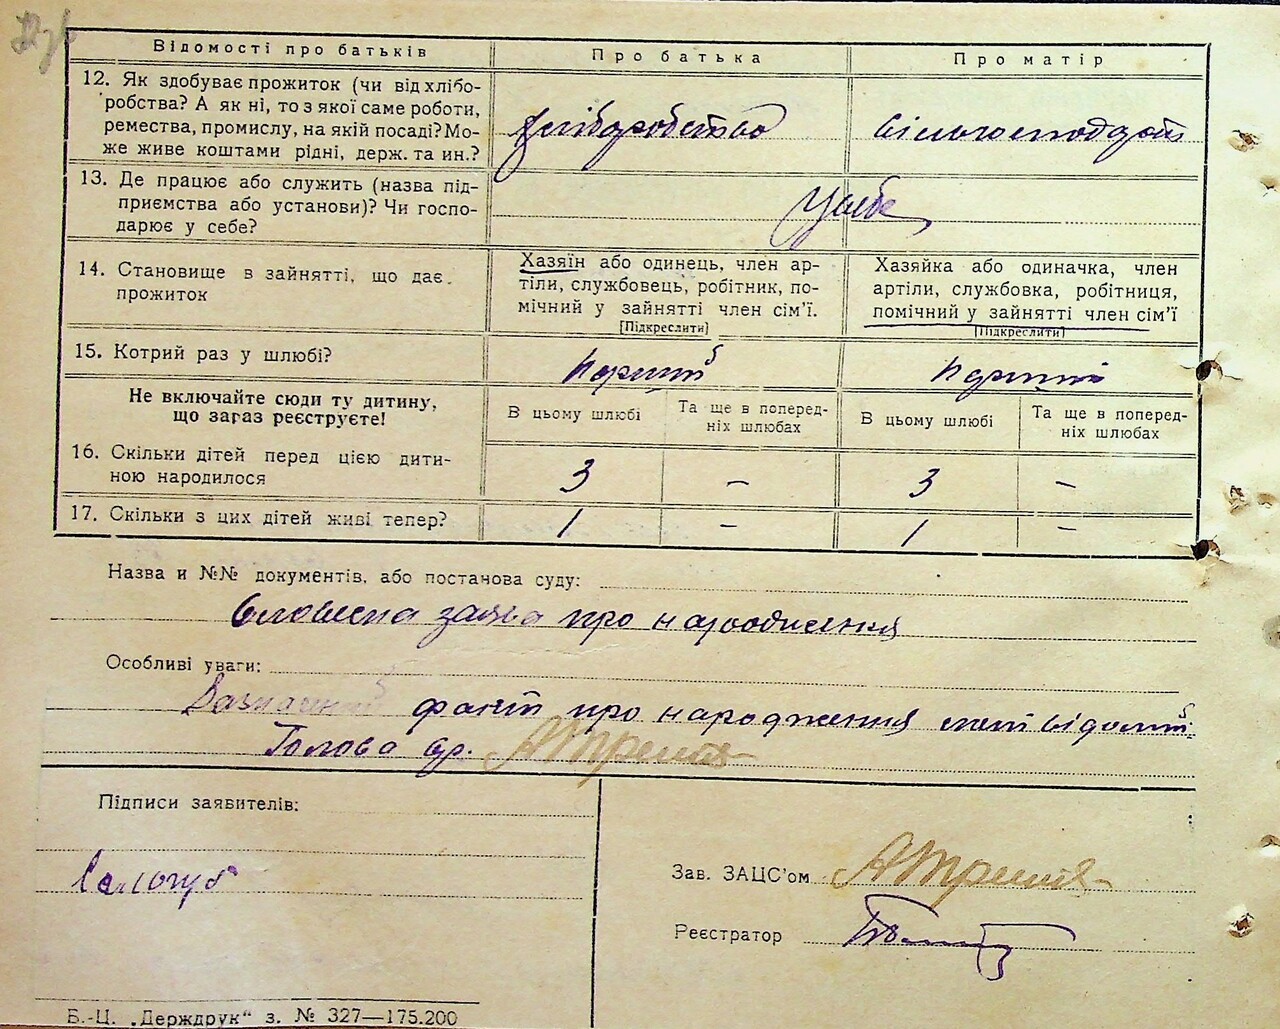 Відомості про батьків
Про батька
Про матір
12. Як здобуває прожиток (чи від хлібо-
робства? А як ні, то з якої саме роботи,
ремества, промислу, на якій посаді? Мо-
же живе коштами рідні, держ. та ин.?
хліборобство
13. Де працює або служить (назва під-
приємства або установи)? Чи госпо-
дарює у себе?
У себе
14. Становище в зайнятті, що дає
прожиток
Хазяїн або одинець, член ар-
тіли, службовець, робітник, по-
мічний у зайнятті член сім'ї.
[Підкреслити]
Хазяйка або одиначка, член
артіли, службовка, робітниця,
помічний у зайнятті член сім'ї
[Підкреслити]
15. Котрий раз у шлюбі?
перший
перший
Не включайте сюди ту дитину,
що зараз реєструєте!
В цьому шлюбі
Та ще в поперед-
ніх шлюбах
В цьому шлюбі
Та ще в поперед-
ніх шлюбах
16. Скільки дітей перед цією дити-
ною народилося
3
–
3
–
17. Скільки з цих дітей живі тепер?
1
–
1
–
Назва и №№ документів, або постанова суду:
словесна заява про народження
Особливі уваги:
факт про народження мені відомий
Голова с/р.
Підписи заявителів:
Зав. ЗАЦС'ом
Реєстратор
Б.-Ц. „Держдрук" з. № 327—175.200